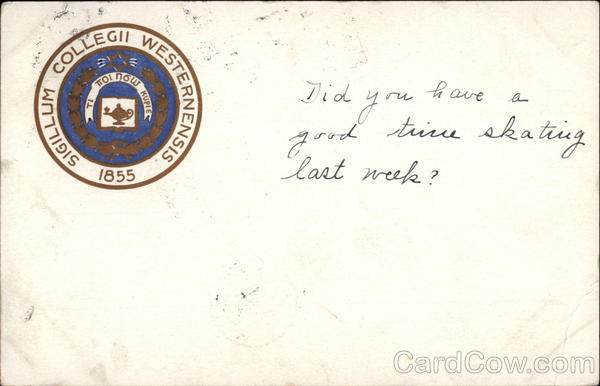 SIGILLUM COLLEGII WESTERNENSIS
1855
Did you have a
good time skating
last week?
CardCow.com